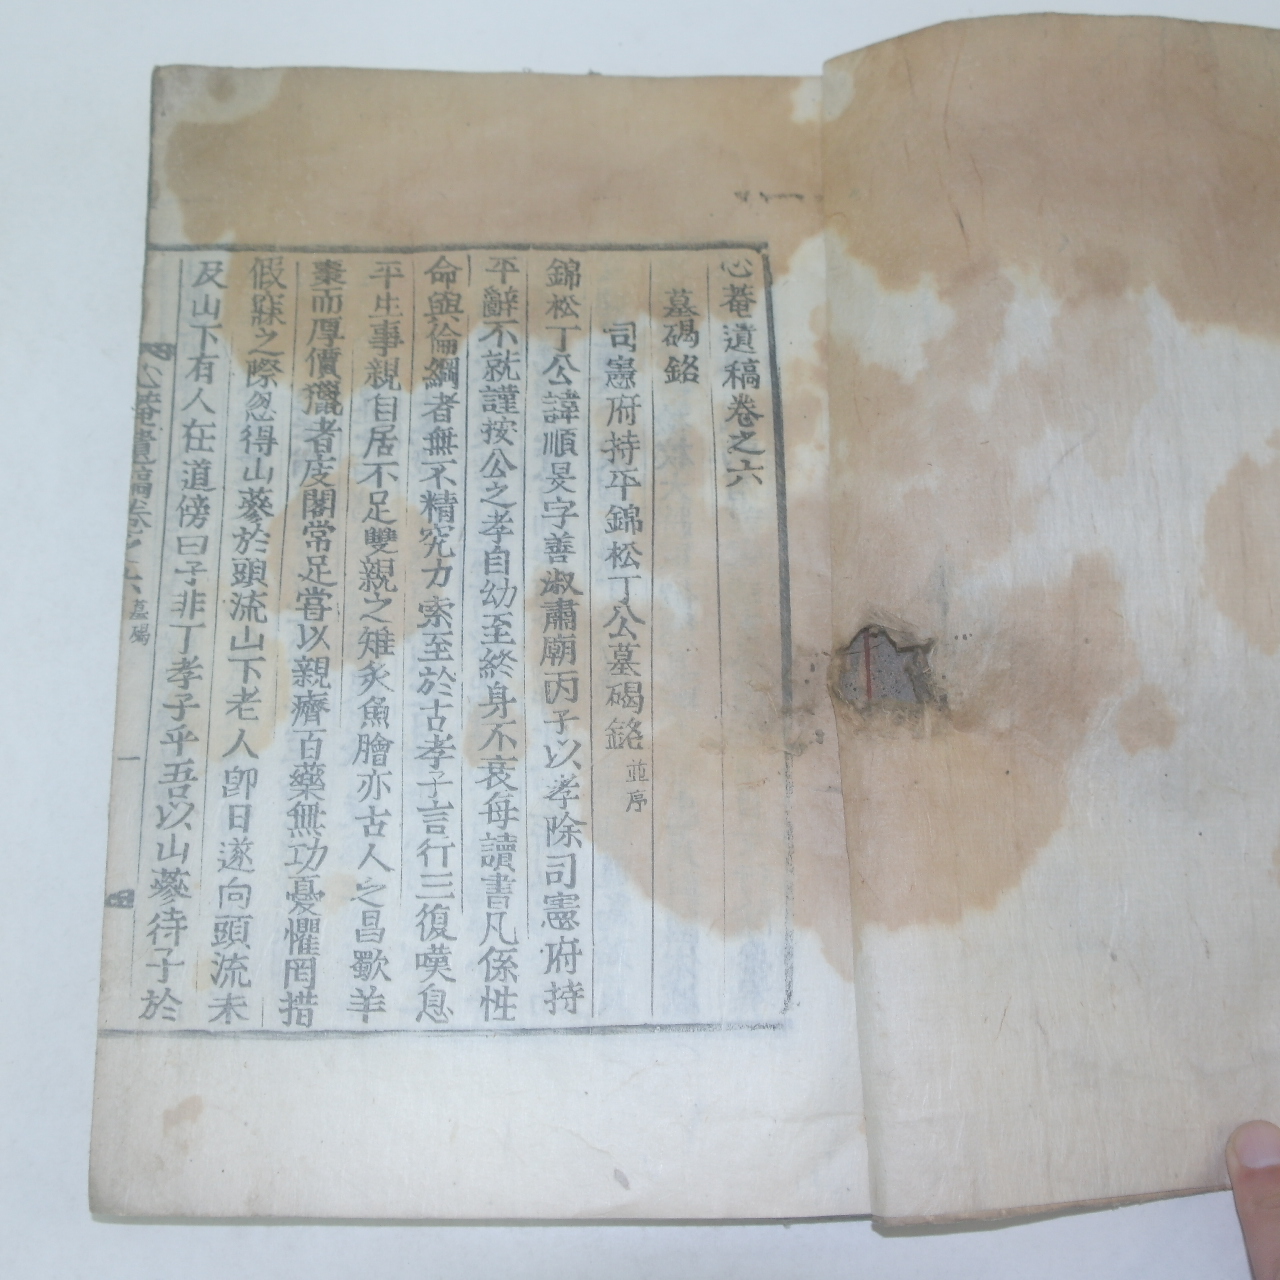 心菴遺稿卷之六
墓碣銘
司憲府持平錦松丁公墓碣銘並序
錦松丁公諱順旻字善淑肅廟丙子以孝除司憲府持
平辭不就謹按公之孝自幼至終身不衰每讀書凡係性
命與倫綱者無不精究力索至於古孝子言行三復嘆息
平生事親自居不足雙親之雉炙魚膾亦古人之昌歜羊
棗而厚價獵者庋閣常足嘗以親癠百藥無功憂懼罔措
假寐之際忽得山蔘於頭流山下老人卽日遂向頭流未
及山下有人在道傍曰子非丁孝子乎吾以山蔘待子於
心菴遺稿卷之六 墓碣 一